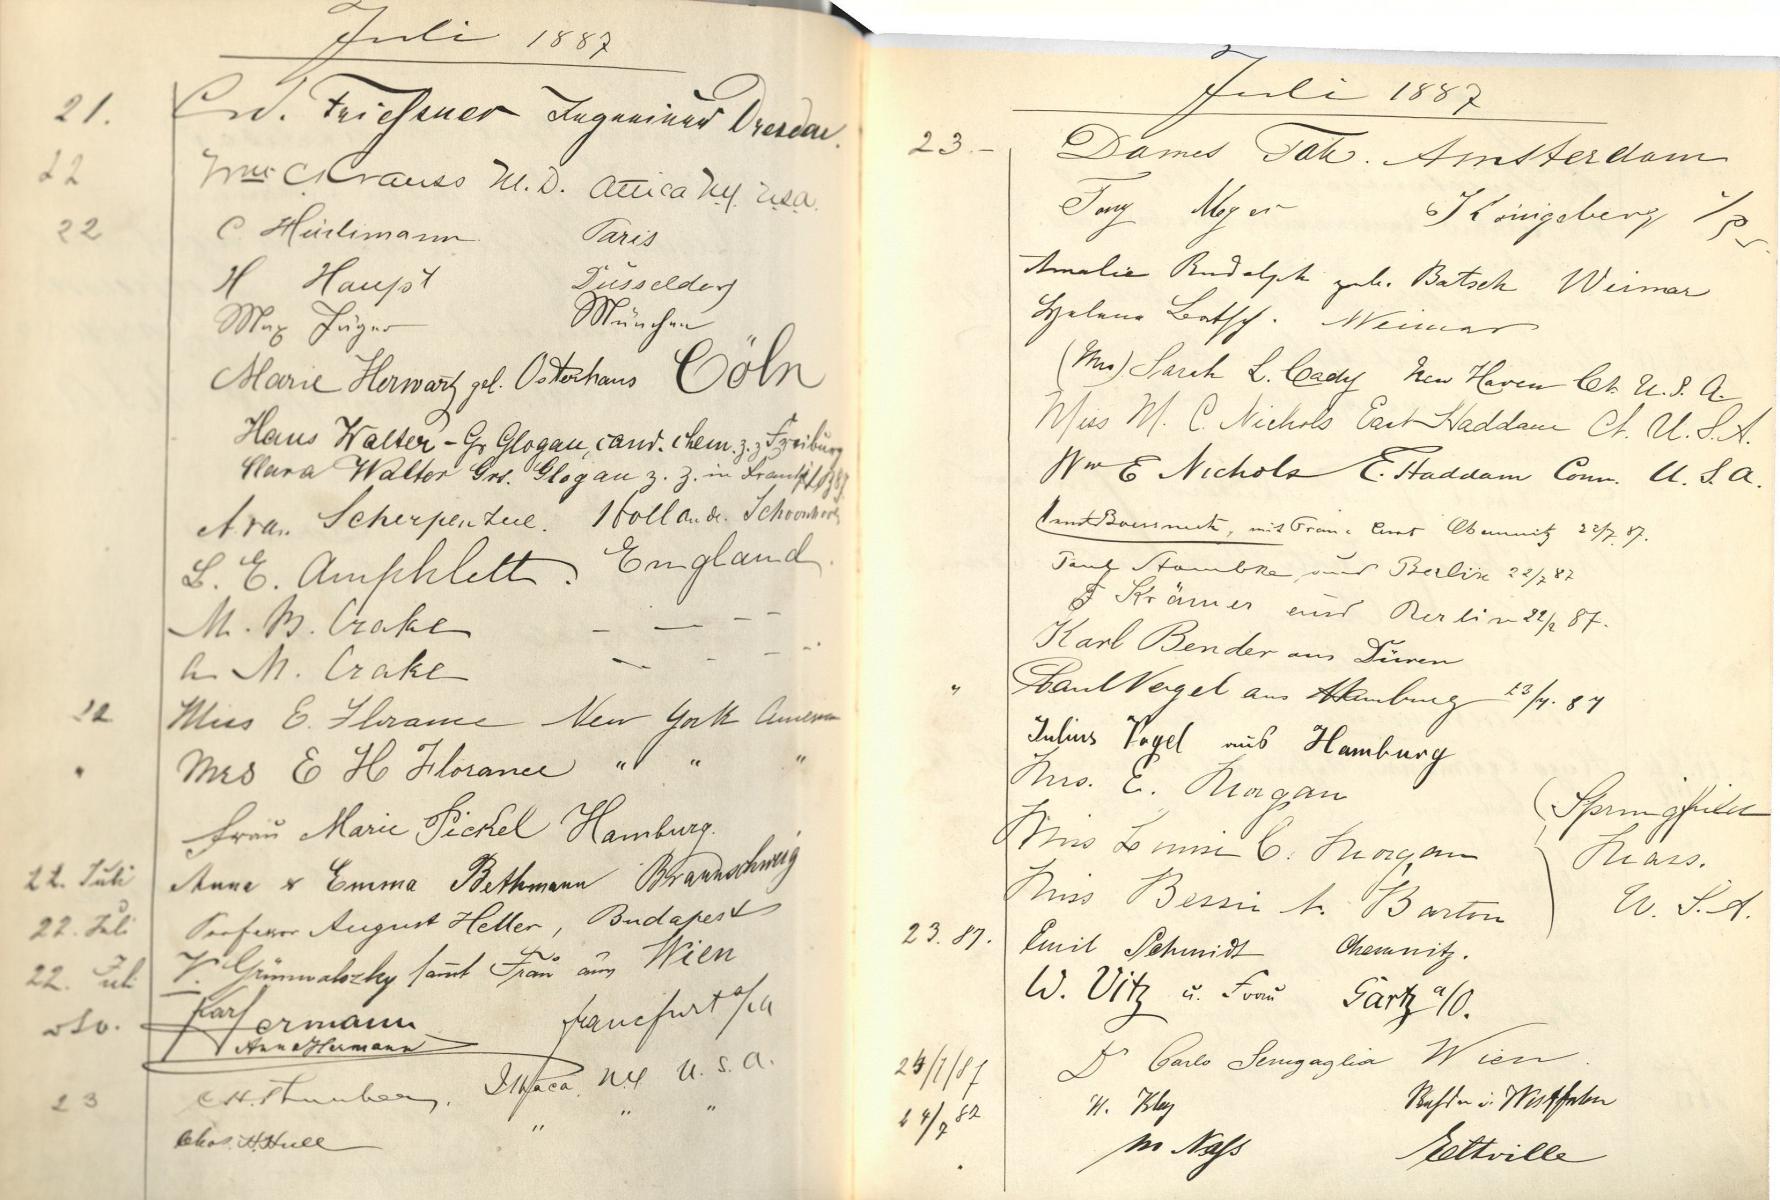 Juli 1887
21. Ed. Frieβner Ingenieur Dresden.
22 Wm C. Krauss M.D. Attica N.Y. U.S.A.
22 C. Hürlimann Paris
H Haupt Düsseldorf
Max Jäger München
Marie Herwartz geb. Osterhaus Cöln
Hans Walter - Gr Glogau, cand. chem. z. z. Freiburg
Clara Walter Grs. Glogau z. z. in
A van Scherpenzeel. Holland. Schoonhoven
L. E. Amphlett. England.
M. B. Crake — — — —
A M. Crake — - - -
22 Miss E. Florance New York America
" Mrs E H Florance " " "
Frau Marie Pickel Hamburg.
22. Juli Anna & Emma Bethmann Braunschweig
22. Juli Professor August Heller, Budapest
22. Juli V. Grünwalszky samt Frau aus Wien
Karl Hermann Francfurt a/M
Anna Hermann
23 C. H. Thurber. Ithaca N.Y. U.S.A.
Chas. H. Hull " " "
Juli 1887
23.- Dames Amsterdam
Königsberg i/Pr
Amalie Rudolph geb. Batsch Weimar
Helene Batsch. Weimar
(Mrs) Sarah L. Cady New Haven Ct. U.S.A.
Miss M. C. Nichols East Haddam Ct. U.S.A.
Wm E Nichols E. Haddam Conn. U.S.A.
mit Frau Chemnitz 22/7 87.
Berlin 22/7 87
F Krämer aus Berlin 22/7 87.
Karl Bender aus Düren
" Paul Vogel aus Hamburg 23/7. 87
Julius Vogel aus Hamburg
Mrs. E. Morgan (Springfield
Miss Louise C. Morgan Mass.
Miss Bessie A. Barton U.S.A.
23. 87. Emil Schmidt Chemnitz.
W. Vitz u. Frau Gartz a/O.
24/7/87 Dr Carlo Senigaglia Wien.
24/7 87 H. Kley i. Westfalen
M Naβs Eltville